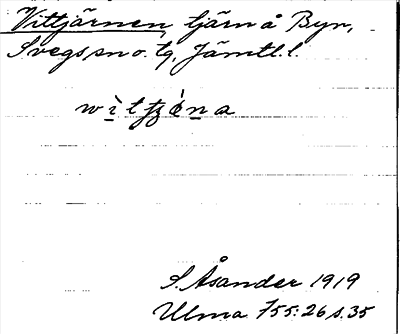 Vittjärnen, tjärn å Byn,
Svegs sn o. tg, Jämtl. l.
S. Åsander 1919
Ulma 755:26 s. 35